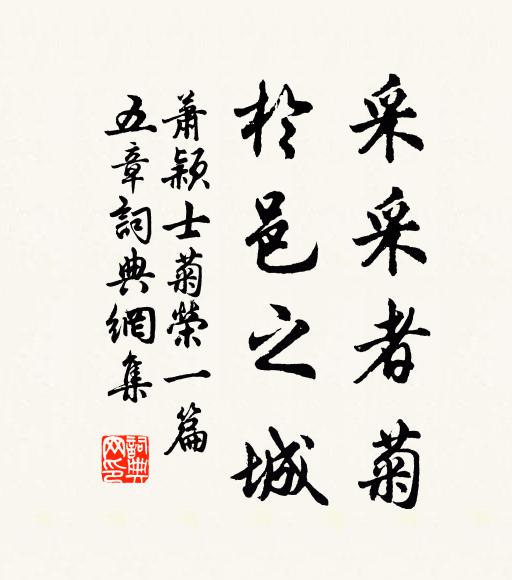 采采者菊
於邑之城
蕭穎士菊榮一篇
五章詞典網集
詞典网印